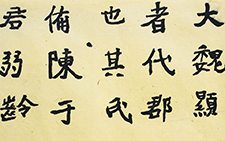 大魏顯
者代郡
也其民
俻陳于
君弱齡